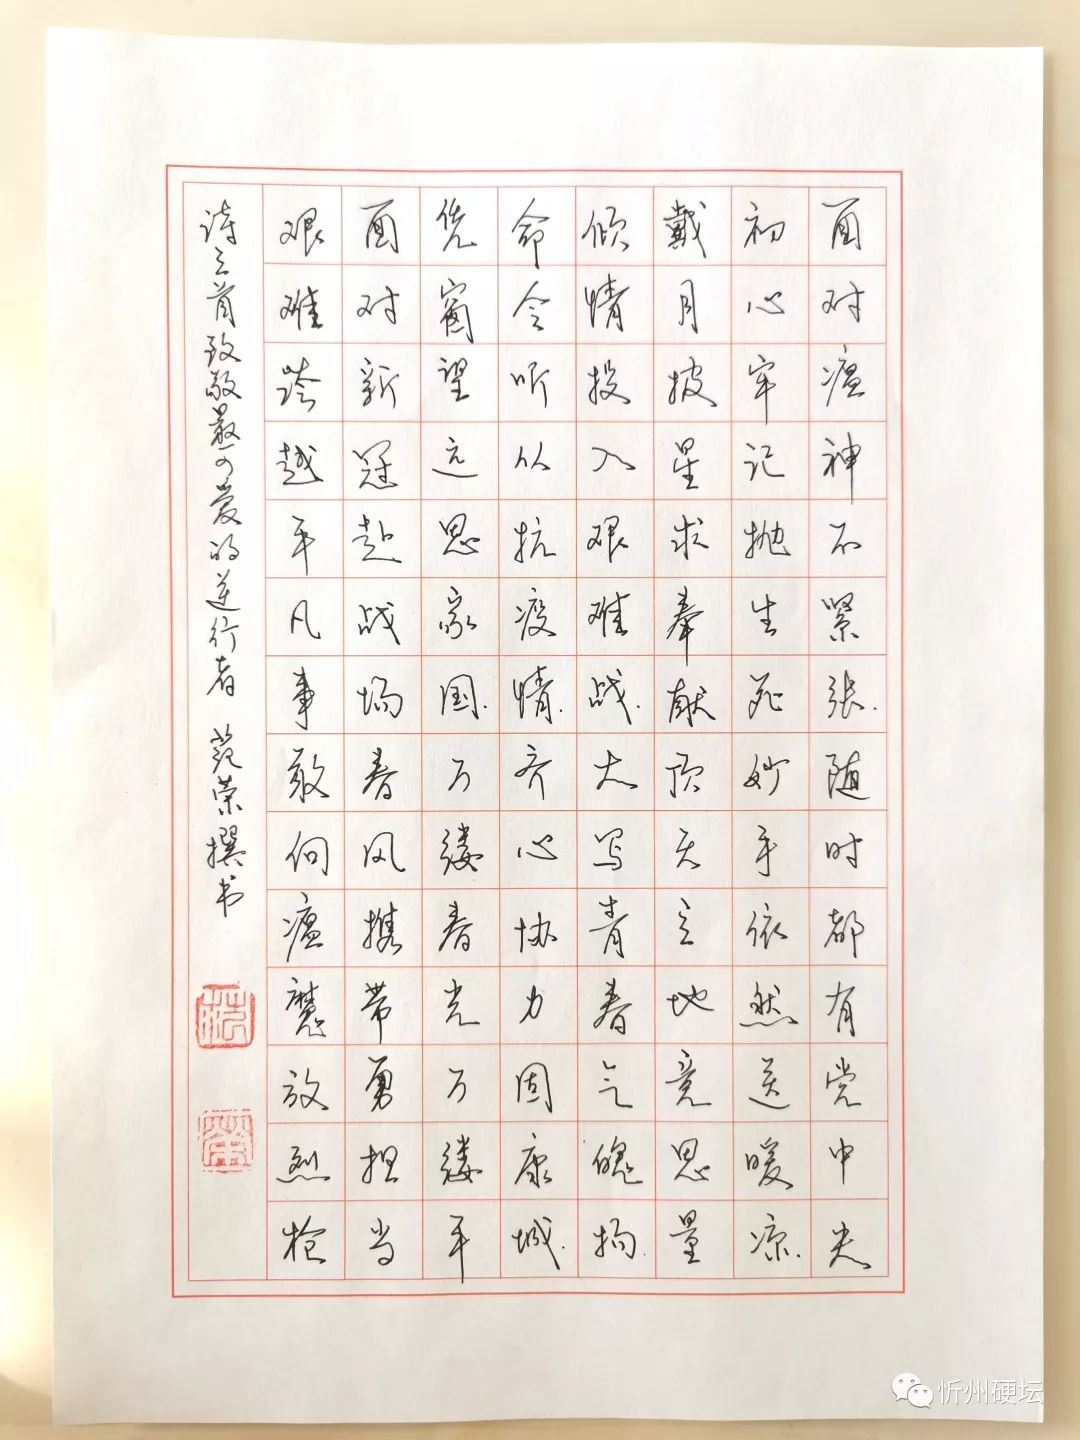 面对瘟神不紧张.随时都有党中央
初心牢记抛生死妙手依然送暖凉.
戴月披星求奉献顶天立地竟思量
倾情投入艰难战.大写青春气魄扬.
命令听从抗疫情.齐心协力固康城.
凭窗望远思家国.万缕春光万缕平
面对新冠赴战场春风携带勇担当
艰难跨越平凡事敢向瘟魔放烈枪
诗三首致敬最可爱的逆行者 范荣撰书
忻州硬坛